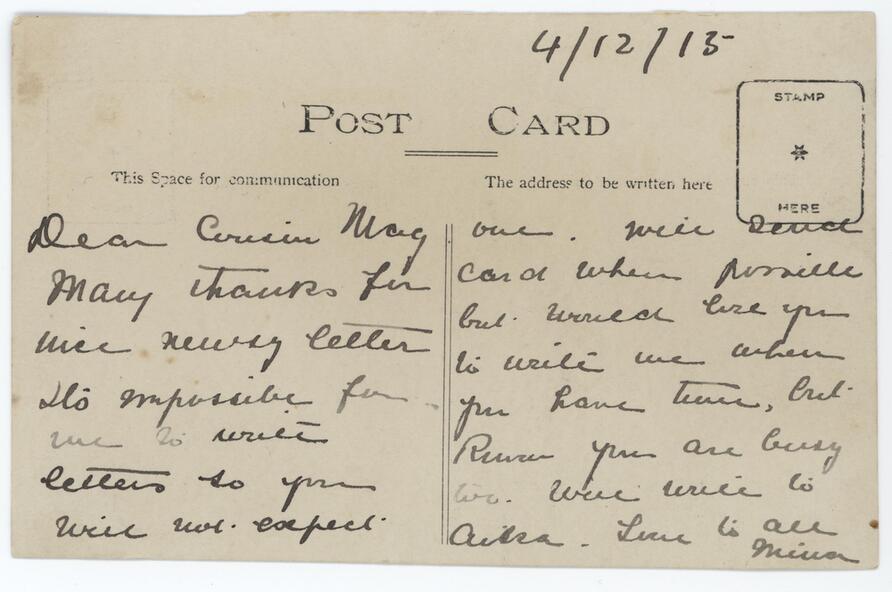 4/12/15
POST CARD
STAMP
HERE
This Space for communication
The address to be written here
Dear Cousin Mag
Many thanks for
nice newsy letter
Its impossible for
me to write
letters so you
will not expect
one. Will send
card when possible
but would love you
to write me when
you have time, but
Know you are busy
too. Will write to
Love to all